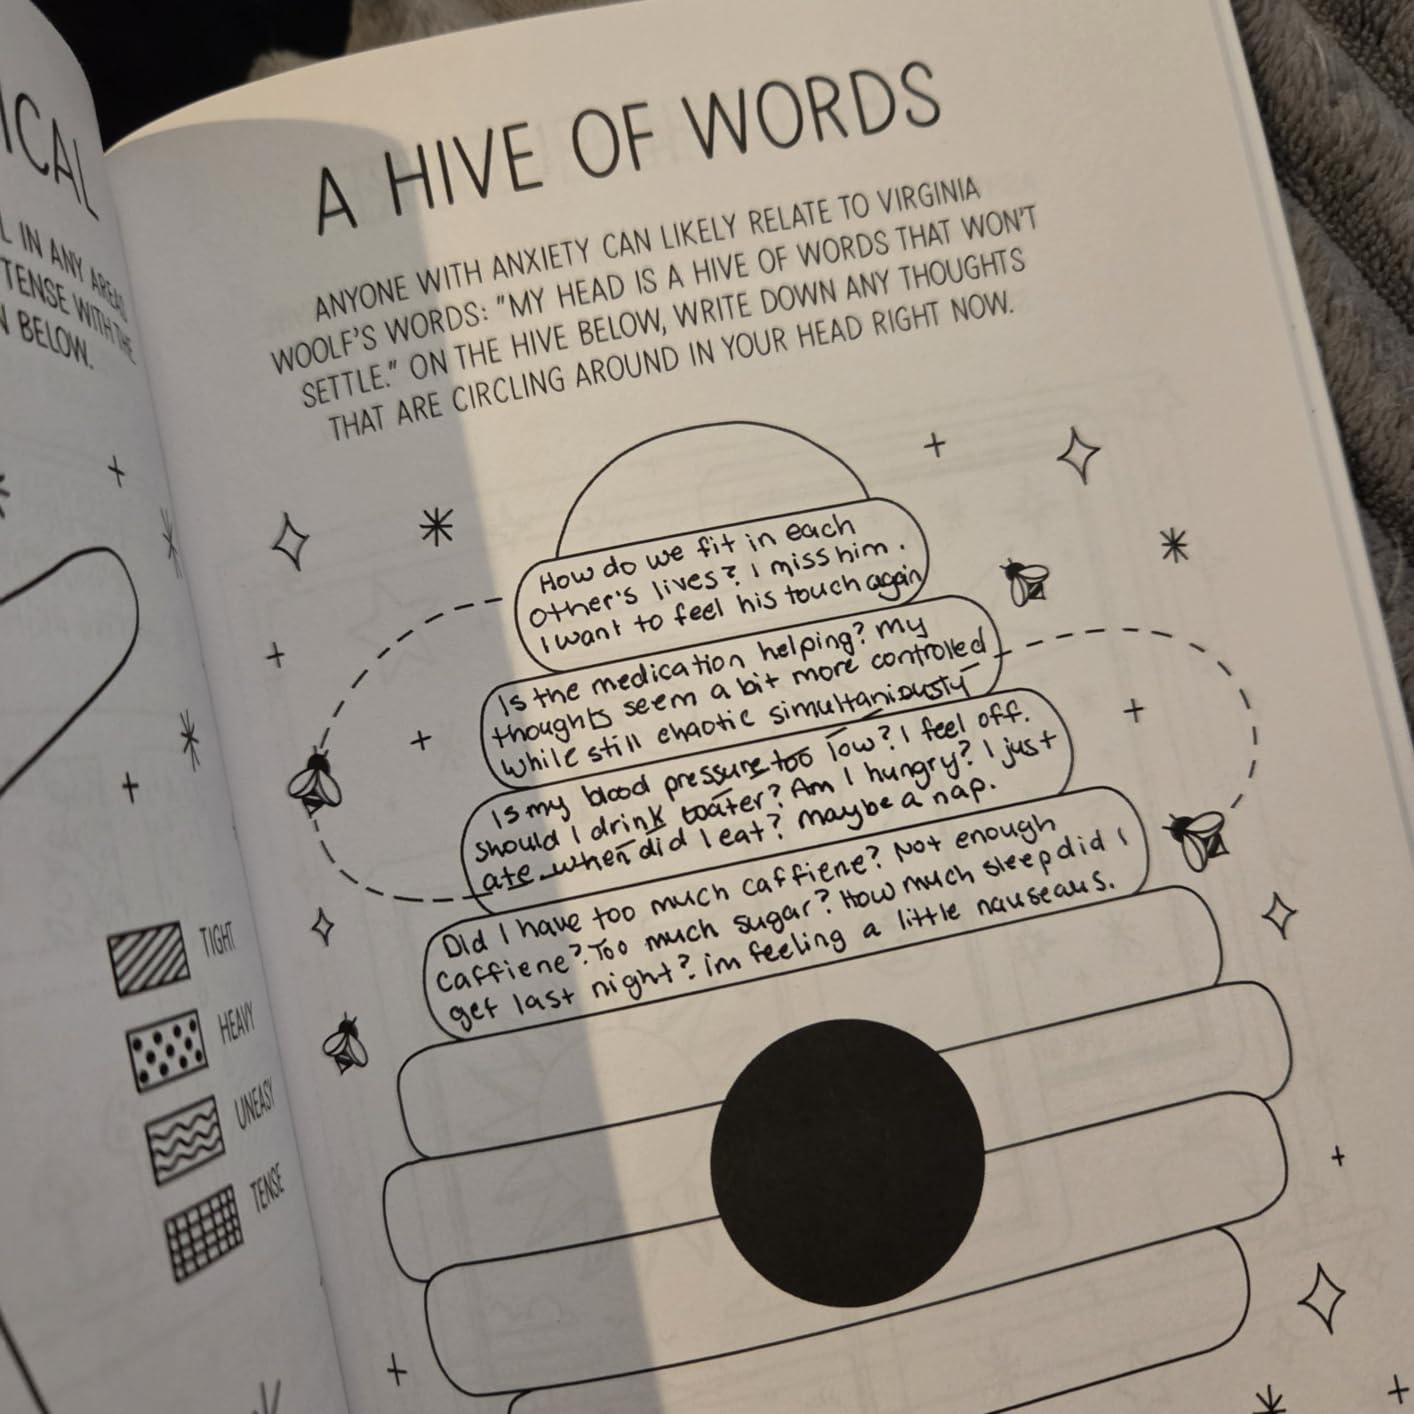 ICAL
L IN ANY AREAS
TENSE WITH THE
N BELOW.
TIGHT
HEAVY
UNEASY
TENSE
A HIVE OF WORDS
ANYONE WITH ANXIETY CAN LIKELY RELATE TO VIRGINIA
WOOLF'S WORDS: "MY HEAD IS A HIVE OF WORDS THAT WON'T
SETTLE." ON THE HIVE BELOW, WRITE DOWN ANY THOUGHTS
THAT ARE CIRCLING AROUND IN YOUR HEAD RIGHT NOW.
How do we fit in each
other's lives? I miss him.
I want to feel his touch again
Is the medication helping? My
thoughts seem a bit more controlled
while still chaotic simultaniously
Is my blood pressure too low? I feel off.
should I drink water? Am I hungry? I just
ate when did I eat? maybe a nap.
Did I have too much caffiene? Not enough
caffiene? Too much sugar? How much sleep did I
get last night? im feeling a little nauseaus.